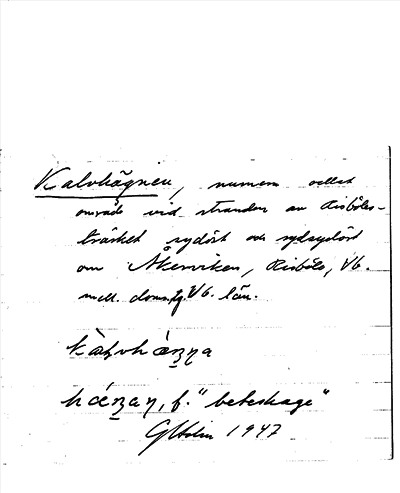 Kalvhägnen, numera odlat
område vid stranden av Risböles-
träsket sydöst och sydsydöst
om Åkerviken, Risböle, Vb.
mell. doms. Vb. län.
f. "beteshage"
GHolm 1947